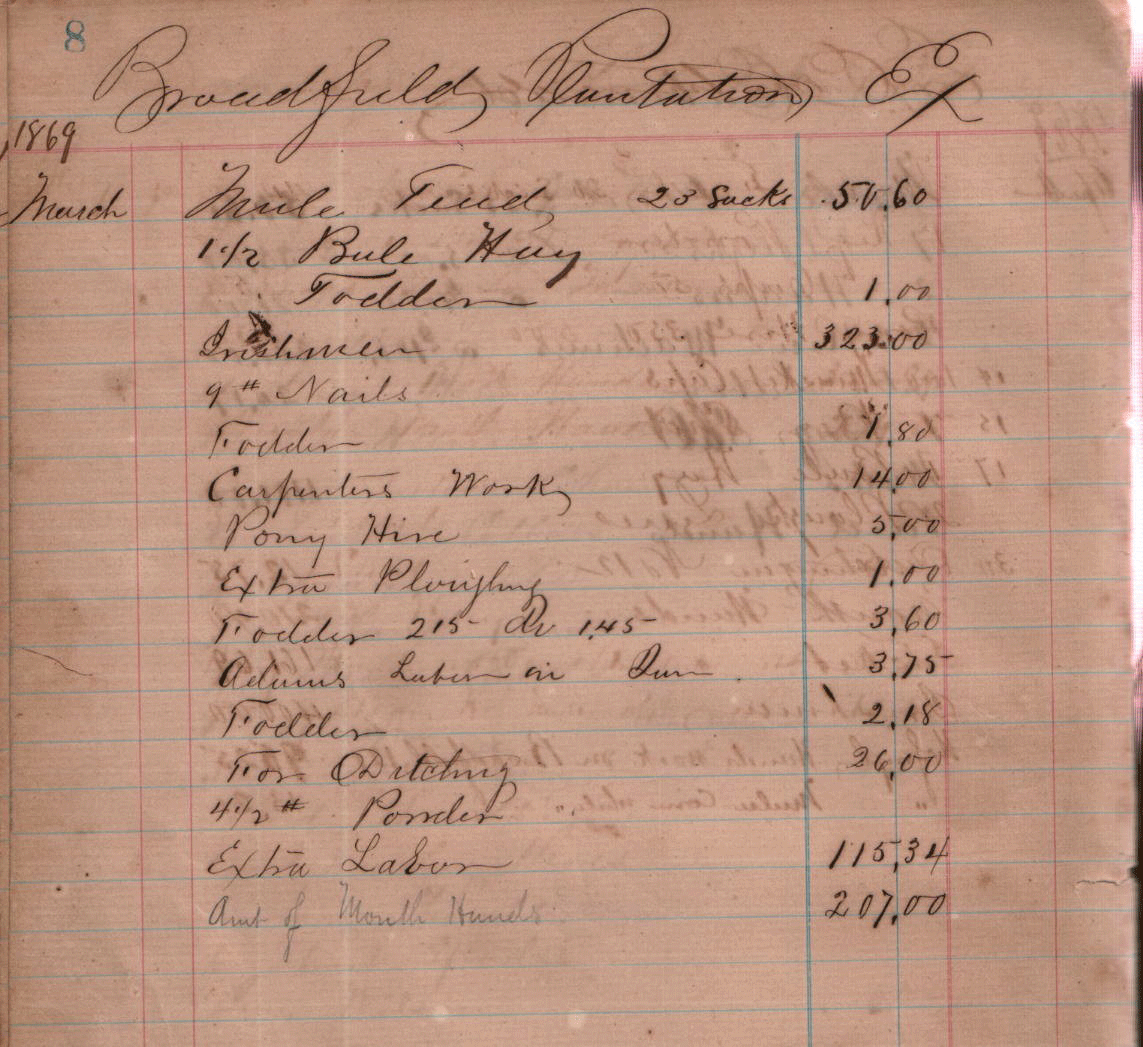 8
Broadfield Plantation Ex
1869
March Mule Feed 23 Sacks 50.60
1 1/2 Bale Hay
Fodder 1.00
Irishmen 323.00
9 # Nails
Fodder 1.80
Carpenters Work 14.00
Pony Hire 5.00
Extra Ploughing 1.00
Fodder 215 1.45 3.60
Adams Labor on 3.75
Fodder 2.18
For Ditching 26.00
4 1/2 # Powder
Extra Labor 115.34
Amt of Month Hands 207.00